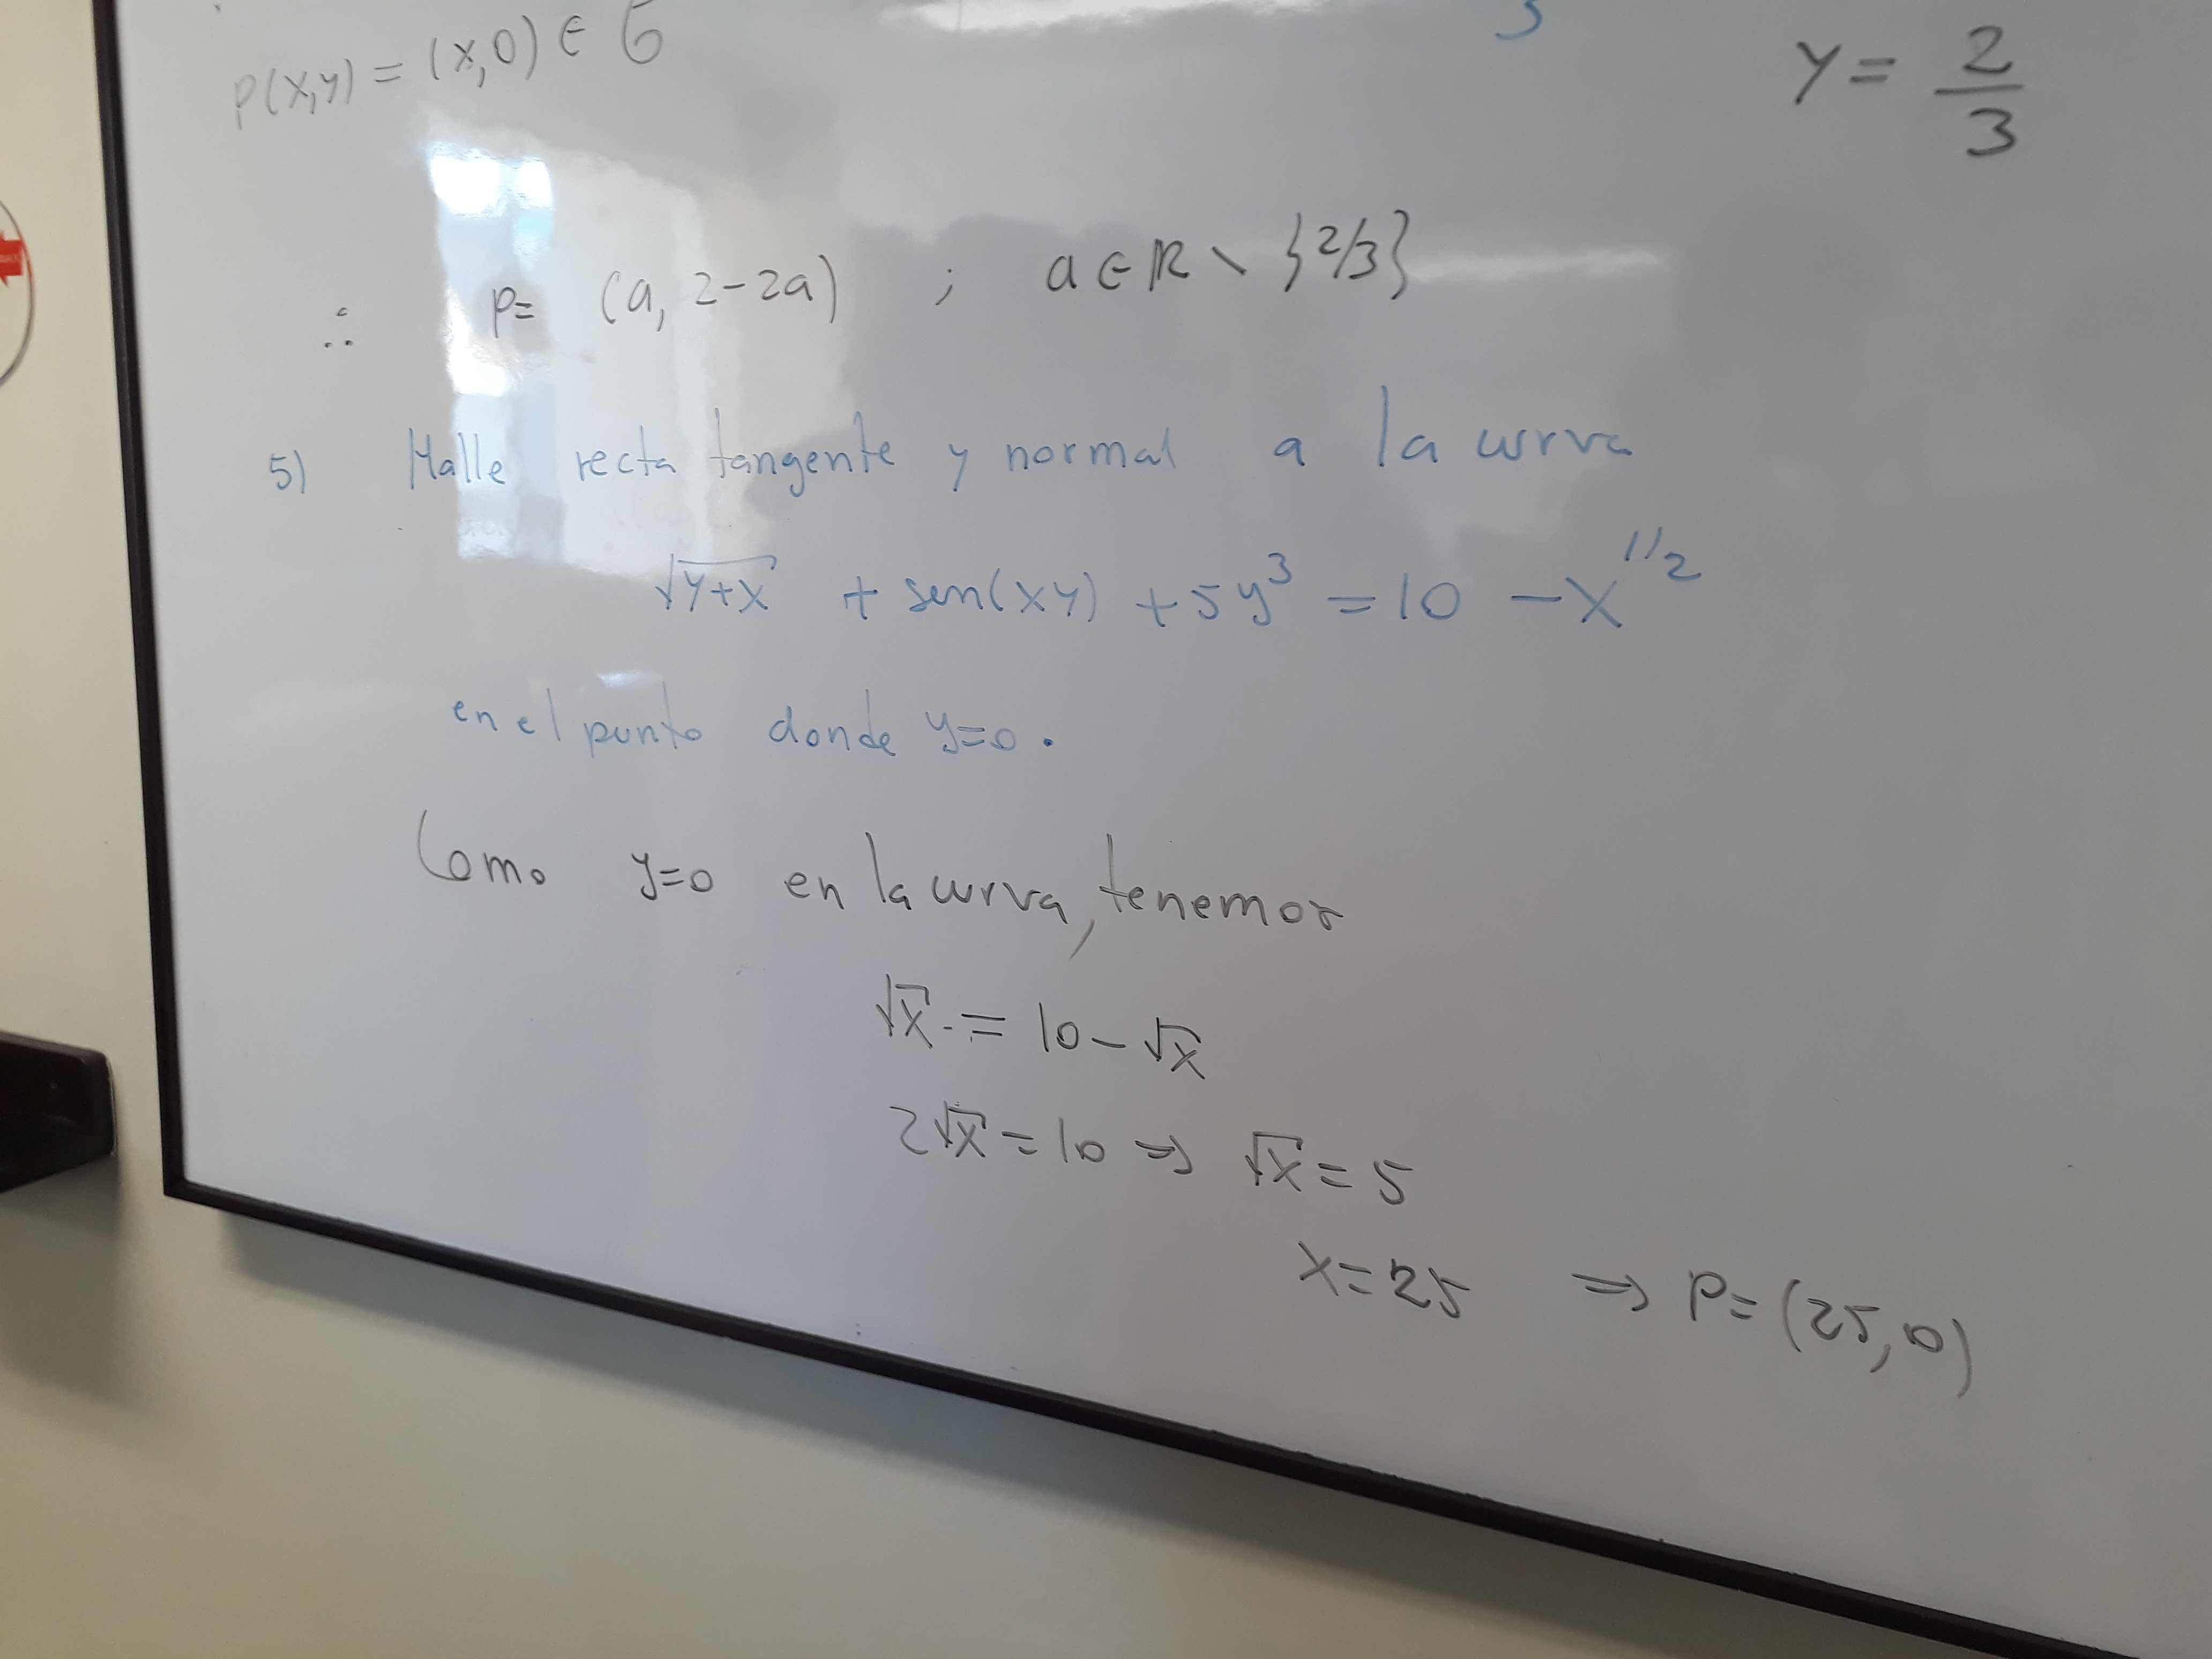 P(x,y) = (x,0) ∈ G
y = 2/3
∴ P= (a, 2-2a) ; a ∈ ℝ \ {2/3}
5) Halle recta tangente y normal a la curva
√(y+x) + sen(xy) + 5y³ = 10 - x^1/2
en el punto donde y=0.
Como y=0 en la curva, tenemos
√x = 10 - √x
2√x = 10 ⇒ √x = 5
x = 25 ⇒ P = (25,0)